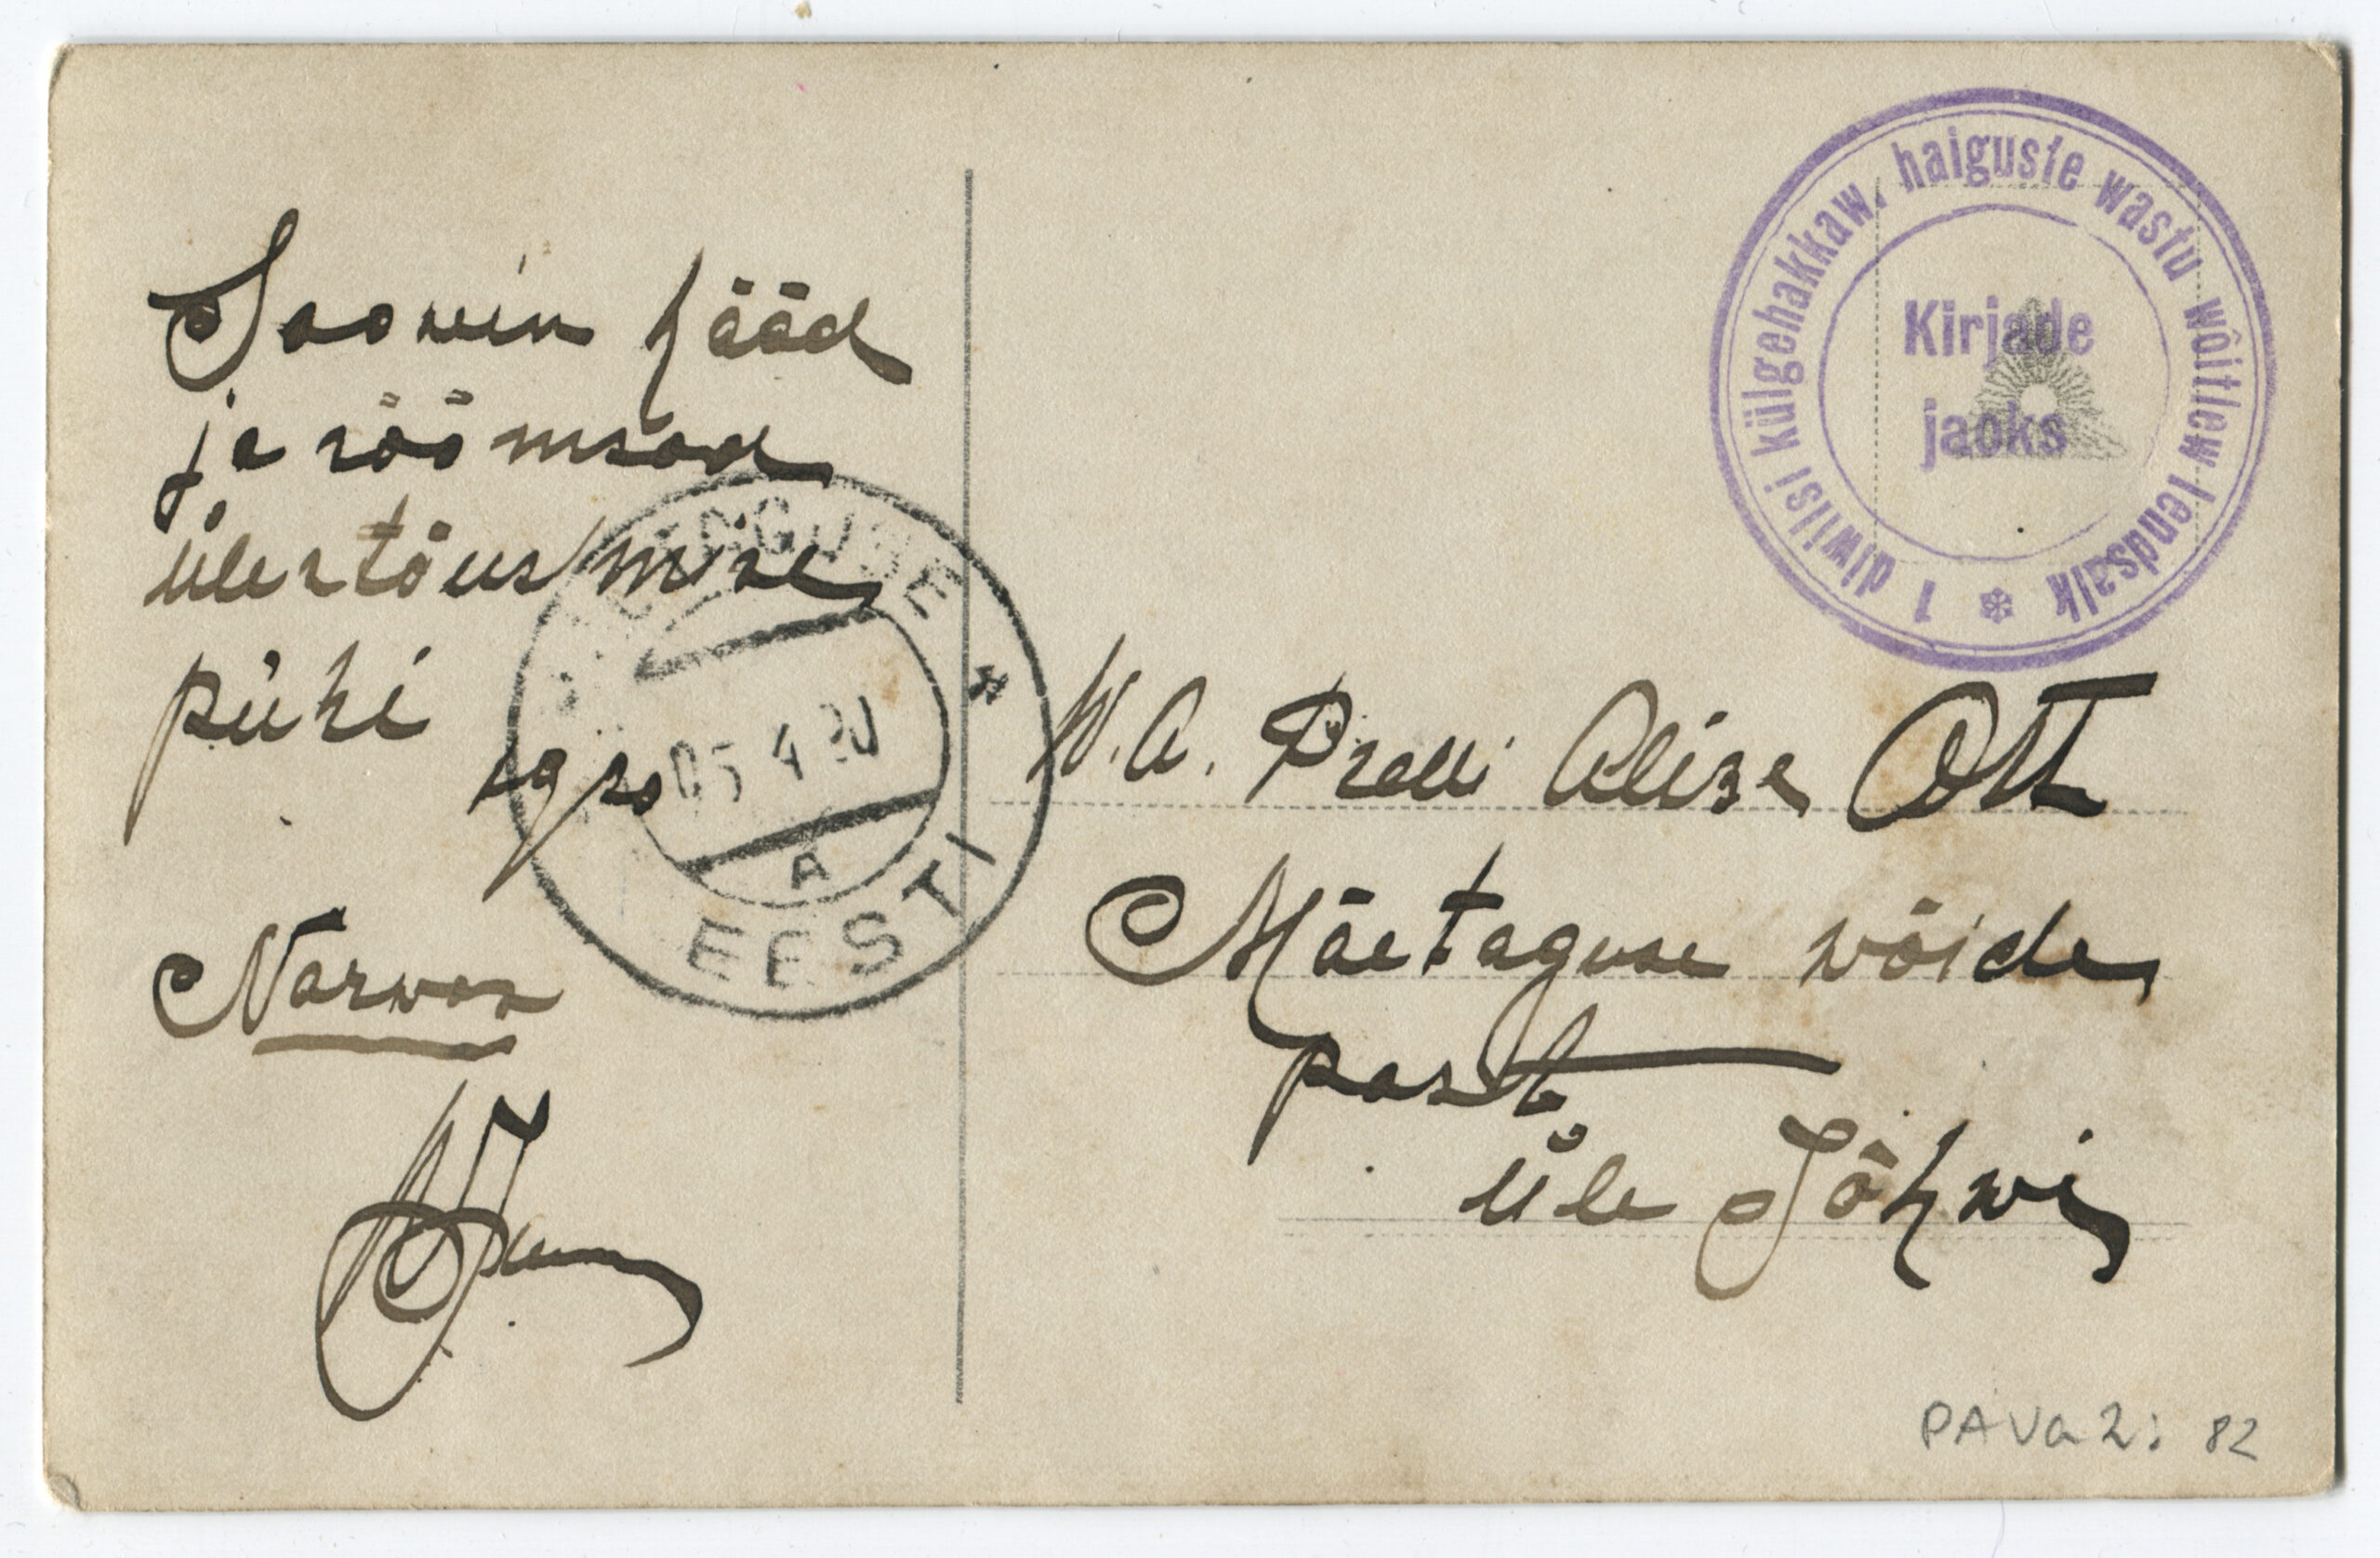 Soowin hääd
ja rõõmsad
ülestõusmise
pühi
Narwas
MÄETAGUSE
05 4 20
A
EESTI
1 diwiisi külgehakkaw. haiguste wastu wõitlew lendsalk
Kirjade
jaoks
W. A. Preili Alise Ott
Mäetaguse wõide
post
üle Jõhwi
PAVa 2: 82